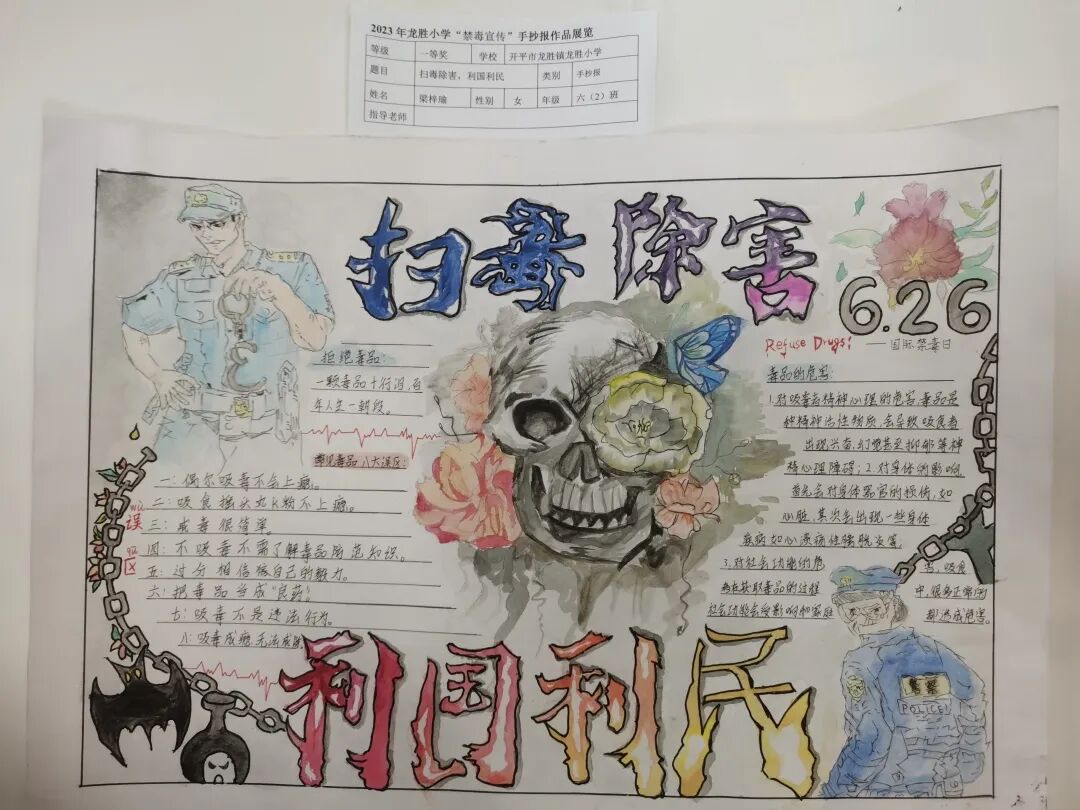 2023年龙胜小学“禁毒宣传”手抄报作品展览
等级 一等奖 学校 开平市龙胜镇龙胜小学
题目 扫毒除害，利国利民 类别 手抄报
姓名 梁梓瑜 性别 女 年级 六（2）班
指导老师
扫毒除害
6.26
Refuse Drugs!
——国际禁毒日
拒绝毒品：
一颗毒品十行泪，百
年人生一朝段。
常见毒品八大误区：
一：偶尔吸毒不会上瘾。
二：吸食摇头丸K粉不上瘾。
三：戒毒很简单。
四：不吸毒不需了解毒品防范知识。
五：过分相信自己的毅力。
六：把毒品当成“良药”
七：吸毒不是违法行为。
八：吸毒成瘾无法戒除
wù
误
qū
区
毒品的危害
1.对吸毒者精神心理的危害，毒品是
种精神活性物质，会导致吸食者
出现兴奋、幻觉甚至抑郁等神
精心理障碍；2.对身体的影响，
首先会对身体器官的损伤，如
心脏，其次会出现一些身体
疾病如心源性猝死
3.对社会功能的危害，吸食
者在获取毒品的过程中，很多正常的
社会功能会受影响和家庭都造成危害。
警察
POLICE
利国利民